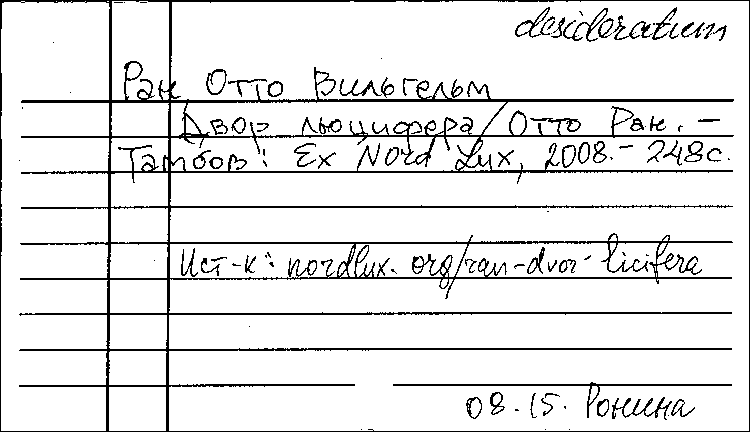 desideratum
Ран, Отто Вильгельм
Двор Люцифера / Отто Ран. –
Тамбов: Ex Nord Lux, 2008. – 248 с.
Ист-к: nordlux.org/ran-dvor-licifera
08.15. Ронина